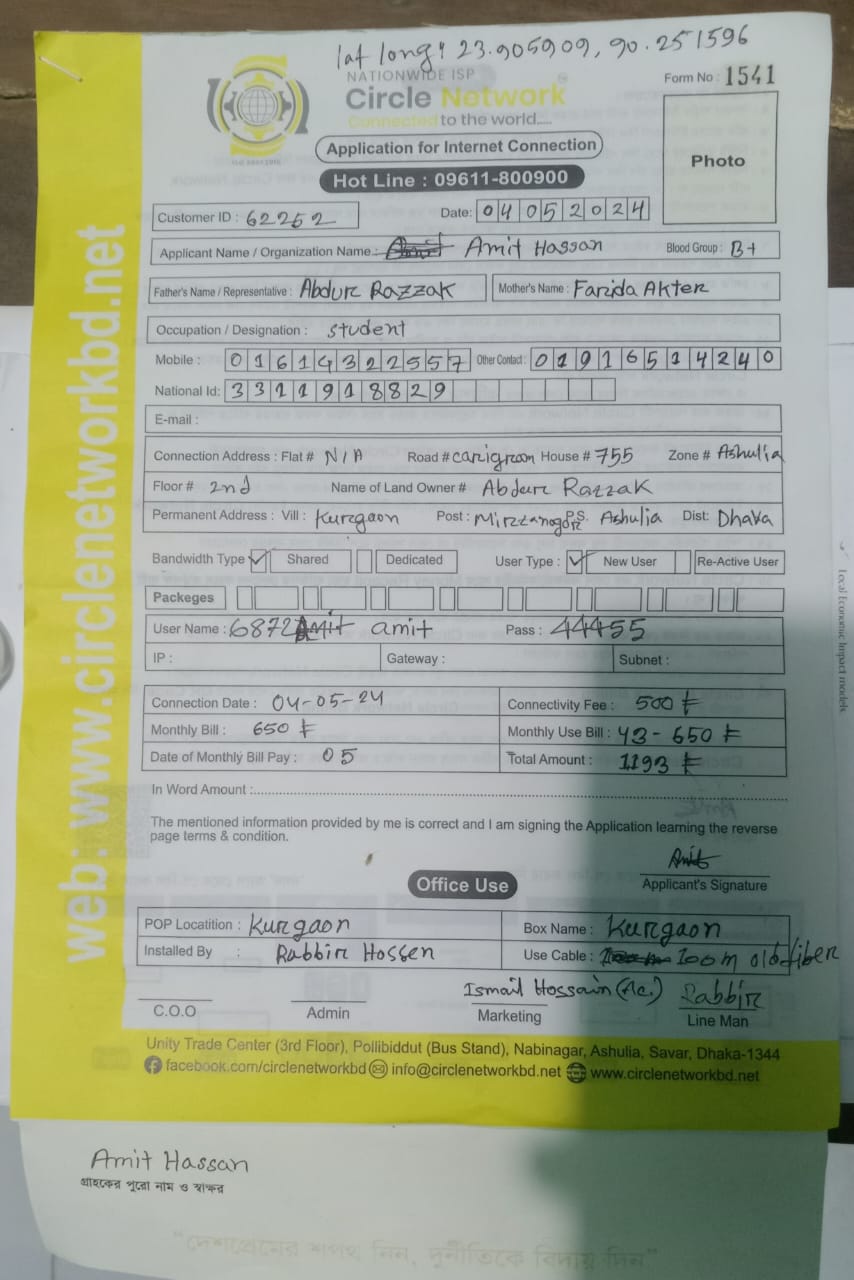 lat long: 23.905909, 90.251596
NATIONWIDE ISP
Circle Network
Connected to the world....
Form No : 1541
Application for Internet Connection
Hot Line : 09611-800900
Photo
Customer ID : 62252 Date: 04 05 2024
Applicant Name / Organization Name : Amit Hassan Blood Group : B+
Father's Name / Representative : Abdur Razzak Mother's Name : Farida Akter
Occupation / Designation : Student
Mobile : 01614322557 Other Contact : 01916514240
National Id: 3311918829
E-mail :
Connection Address : Flat # N/A Road # House # 755 Zone # Ashulia
Floor # 2nd Name of Land Owner # Abdur Razzak
Permanent Address : Vill : Kurgaon Post : P.S. Ashulia Dist: Dhaka
Bandwidth Type Shared Dedicated User Type : New User Re-Active User
Packeges
User Name : 6872 amit Pass : 44455
IP : Gateway : Subnet :
Connection Date : 04-05-24 Connectivity Fee : 500 ৳
Monthly Bill : 650 ৳ Monthly Use Bill : 43 - 650 ৳
Date of Monthly Bill Pay : 05 Total Amount : 1193 ৳
In Word Amount :
The mentioned information provided by me is correct and I am signing the Application learning the reverse
page terms & condition.
Amit
Applicant's Signature
Office Use
POP Locatition : Kurgaon Box Name : Kurgaon
Installed By : Rabbir Hossen Use Cable : 100m old fiber
Ismail Hossain (Ac.) Rabbir
C.O.O Admin Marketing Line Man
Unity Trade Center (3rd Floor), Pollibiddut (Bus Stand), Nabinagar, Ashulia, Savar, Dhaka-1344
facebook.com/circlenetworkbd info@circlenetworkbd.net www.circlenetworkbd.net
web: www.circlenetworkbd.net
Amit Hassan
গ্রাহকের পুরো নাম ও স্বাক্ষর
"দেশপ্রেমের শপথ নিন, দুর্নীতিকে বিদায় দিন"
Local Economic Impact models